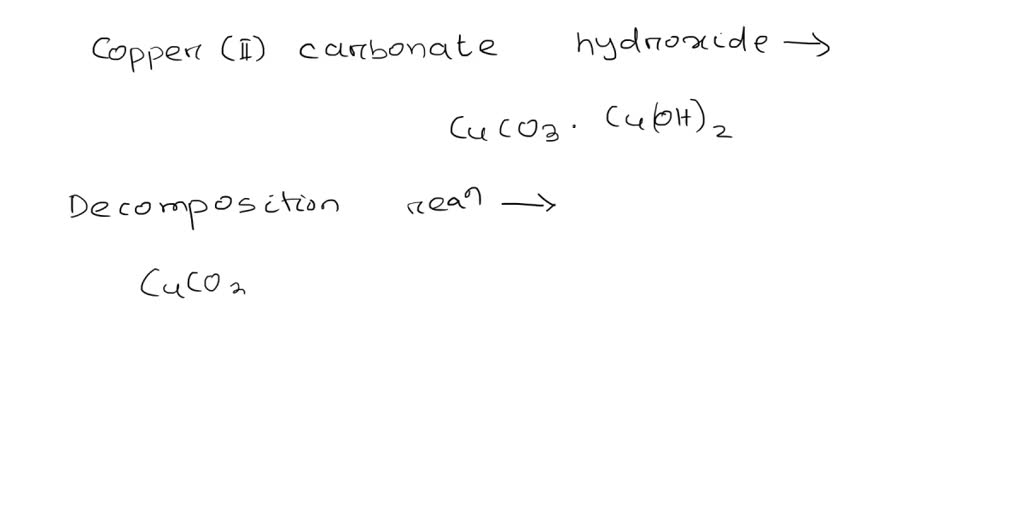 Copper (II) carbonate hydroxide →
CuCO3 · Cu(OH)2
Decomposition reaⁿ →
CuCO2